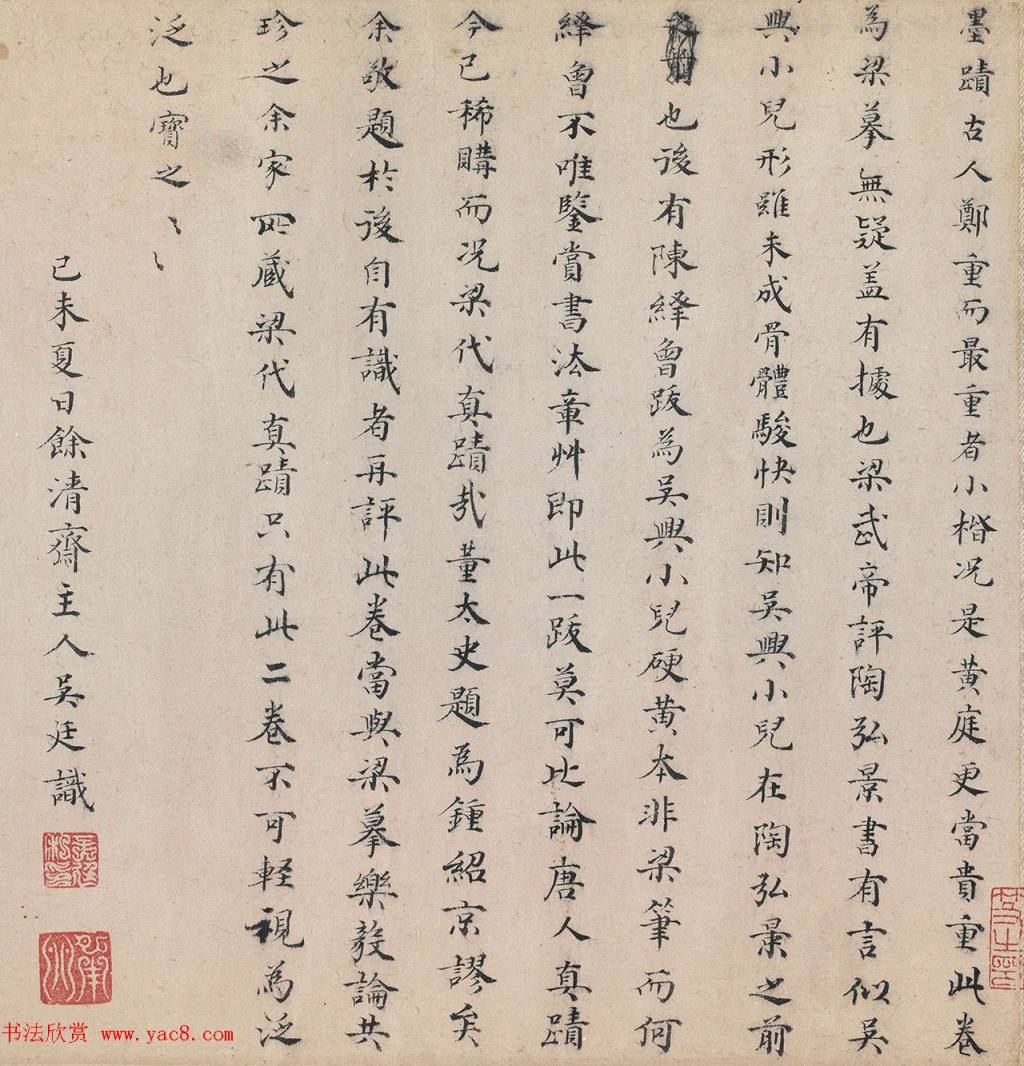 墨蹟古人鄭重而最重者小楷况是黄庭更當貴重此卷
為梁摹無疑盖有據也梁武帝評陶弘景書有言似吴
興小兒形雖未成骨體駿快則知吴興小兒在陶弘景之前
也後有陳繹曾跋為吴興小兒硬黄本非梁筆而何
繹曾不唯鑒賞書法章艸即此一跋莫可比論唐人真蹟
今已稀購而况梁代真蹟㦲董太史題為鍾紹京謬矣
余敬題於後自有識者再評此卷當與梁摹樂毅論共
珍之余家所藏梁代真蹟只有此二卷不可軽視為泛
泛也寶之〻〻
己未夏日餘清齋主人吴廷識
书法欣赏 www.yac8.com